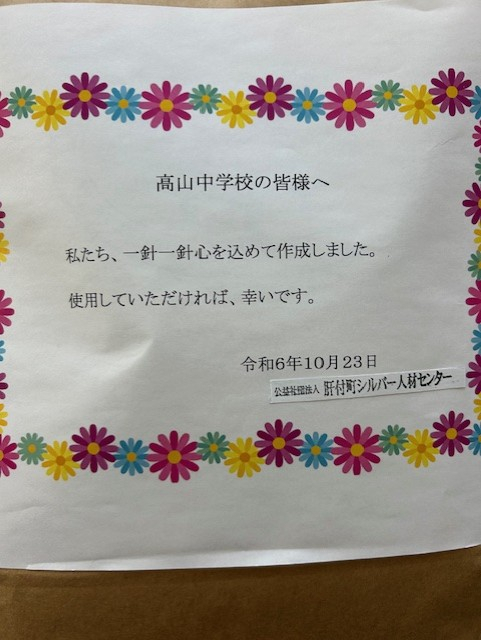 高山中学校の皆様へ
私たち、一針一針心を込めて作成しました。
使用していただければ、幸いです。
令和6年10月23日
公益社団法人 肝付町シルバー人材センター